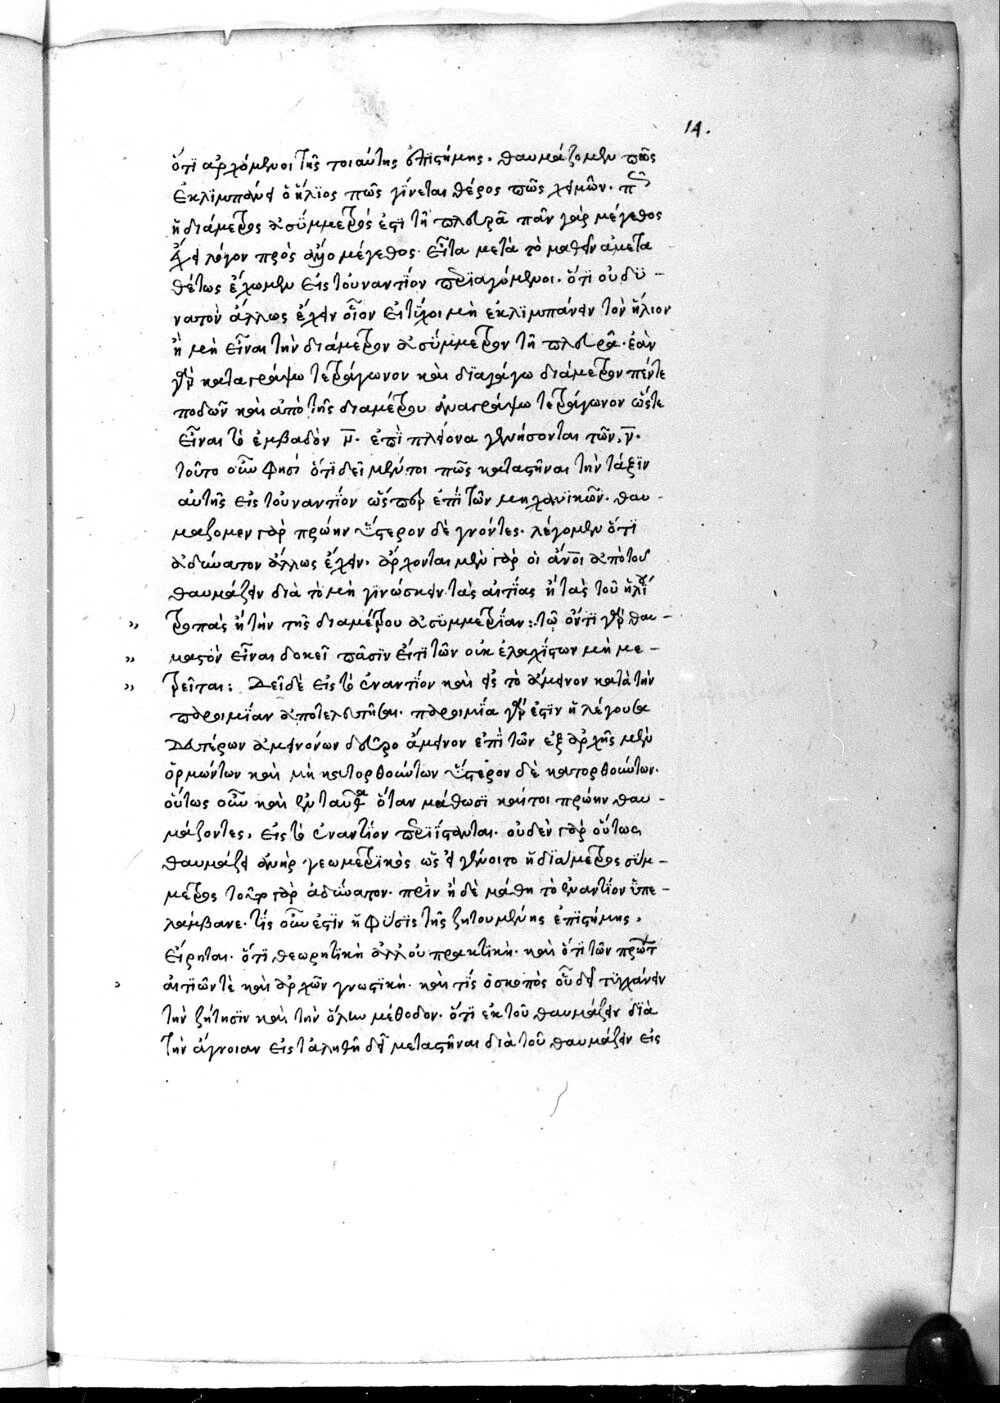 14.
ὅτι ἀρχόμενοι τῆς τοιαύτης ἐπιστήμης· θαυμάζομεν πῶς
ἐκλιμπάνει ὁ ἥλιος πῶς γίνεται θέρος πῶς χειμών·
ἡ διάμετρος ἀσύμμετρός ἐστι τῇ πλευρᾷ πᾶν γὰρ μέγεθος
ἔχει λόγον πρὸς ἄλλο μέγεθος· εἶτα μετὰ τὸ μαθεῖν ἀμετα
θέτως ἔχομεν εἰς τουναντίον περιαγόμενοι· ὅτι οὐ δυ –
νατὸν ἄλλως ἔχειν οἷον εἰ τύχοι μὴ ἐκλιμπάνειν τὸν ἥλιον
ἢ μὴ εἶναι τὴν διάμετρον ἀσύμμετρον τῇ πλευρᾷ· ἐὰν
γὰρ καταγράψω τετράγωνον καὶ διαγάγω διάμετρον πέντε
ποδῶν καὶ ἀπὸ τῆς διαμέτρου ἀναγράψω τετράγωνον ὥστε
εἶναι τὸ ἐμβαδὸν ν· ἐπὶ πλείονα γενήσονται τῶν ν·
τοῦτο οὖν φησὶ ὅτι δεῖ μέντοι πῶς καταστῆναι τὴν τάξιν
αὐτῆς εἰς τοὐναντίον ὥσπερ ἐπὶ τῶν μηχανικῶν· θαυ –
μάζομεν γὰρ πρώην ὕστερον δὲ γνόντες· λέγομεν ὅτι
ἀδύνατον ἄλλως ἔχειν· ἄρχονται μὲν γὰρ οἱ ἄνοι ἀπὸ τοῦ
θαυμάζειν διὰ τὸ μὴ γινώσκειν τὰς αἰτίας ἢ τὰς τοῦ ἡλίου
τροπὰς ἢ τὴν τῆς διαμέτρου ἀσυμμετρίαν: τῷ ὄντι γὰρ θαυ –
μαστὸν εἶναι δοκεῖ πᾶσιν εἴ τι τῶν οὐκ ἐλαχίστων μὴ με –
τρεῖται: Δεῖ δὲ εἰς τὸ ἐναντίον καὶ εἰς τὸ ἄμεινον κατὰ τὴν
παροιμίαν ἀποτελευτῆσαι· παροιμία γάρ ἐστιν ἡ λέγουσα
Δευτέρων ἀμεινόνων δεῦρο ἄμεινον ἐπὶ τῶν ἐξ ἀρχῆς μὲν
ὁρμώντων καὶ μὴ κατορθούντων ὕστερον δὲ κατορθούντων·
οὕτως οὖν καὶ ἐνταῦθα ὅταν μάθωσι καίτοι πρώην θαυ –
μάζοντες, εἰς τὸ ἐναντίον περιίστανται· οὐδὲν γὰρ οὕτως
θαυμάζει ἀνὴρ γεωμετρικὸς ὡς εἰ γένοιτο ἡ διάμετρος σύμ –
μετρος τοῦτο γὰρ ἀδύνατον· πρὶν ἢ δὲ μάθῃ τὸ ἐναντίον ὑπε –
λάμβανε· τίς οὖν ἐστιν ἡ φύσις τῆς ζητουμένης ἐπιστήμης,
εἴρηται· ὅτι θεωρητικὴ ἀλλ' οὐ πρακτική· καὶ ὅτι τῶν πρώτων
αἰτιῶν τε καὶ ἀρχῶν γνωστική· καὶ τίς ὁ σκοπὸς οὗ δεῖ τυγχάνειν
τὴν ζήτησιν καὶ τὴν ὅλην μέθοδον· ὅτι ἐκ τοῦ θαυμάζειν διὰ
τὴν ἄγνοιαν εἰς τἀληθῆ δεῖ μεταστῆναι διὰ τοῦ θαυμάζειν εἰς